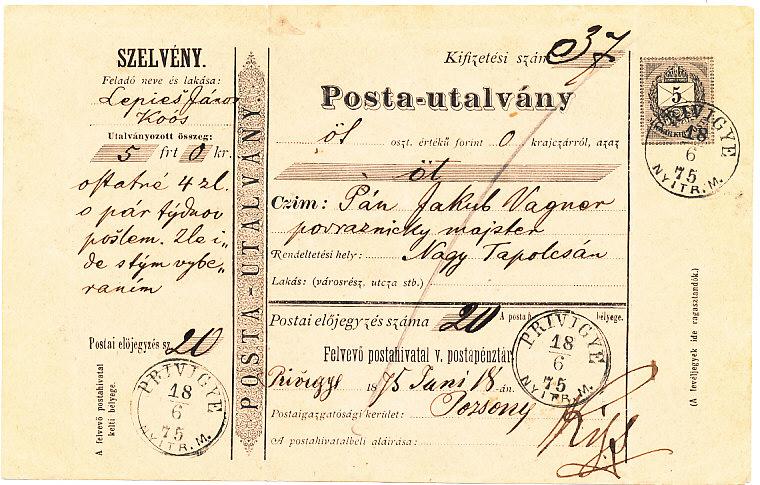 SZELVÉNY.
Feladó neve és lakása:
Lepieš János
Koós
Utalványozott összeg:
5 frt 0 kr.
ostatné 4 zl.
o pár týdnov
pošlem. Zle i„
de s tým vybe„
raním
Postai előjegyzés sz. 20
A felvevő postahivatal
kelti bélyege.
PRIVIGYE
18
6
75
NYITR. M.
POSTA-UTALVÁNY.
Kifizetési szám 37
Posta-utalvány
öt oszt. értékű forint 0 krajczárról, azaz
öt
Czim: Pán Jakub Vagner
povraznicky majster
Rendeltetési hely: Nagy Tapolcsán
Lakás: (városrész, utcza stb.)
Postai előjegyzés száma 20 A posta bélyege.
Felvevő postahivatal v. postapénztár
Privigye 1875 Juni 18-án.
Postaigazgatósági kerület: Pozsony
A postahivatalbeli aláirása:
PRIVIGYE
18
6
75
NYITR. M.
5
PRIVIGYE
18
6
75
NYITR. M.
(A levéljegyek ide ragasztandók.)